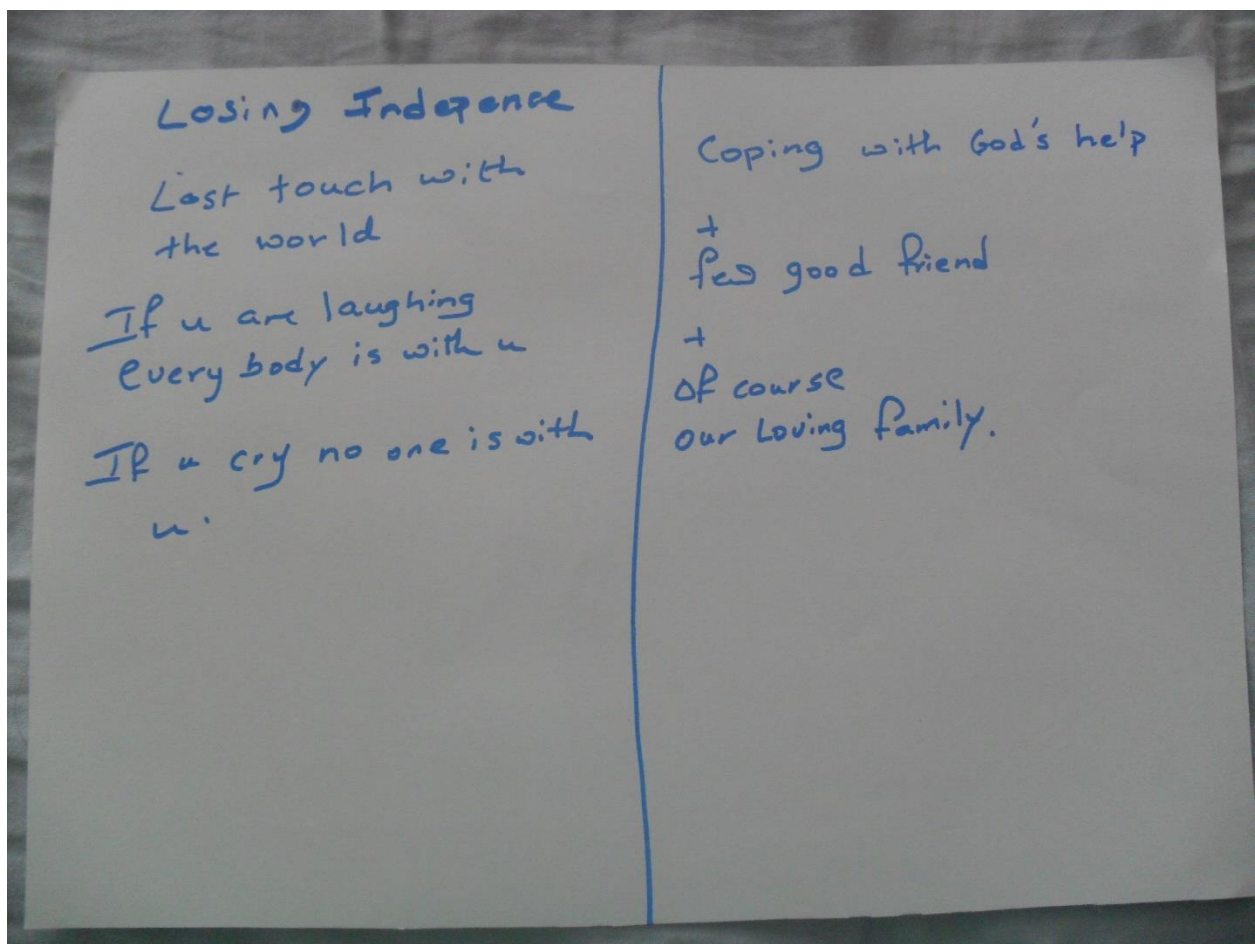 Losing Indepence
Lost touch with
the world
If u are laughing
every body is with u
If u cry no one is with
u.
Coping with God's help
+
few good friend
+
of course
our Loving family.